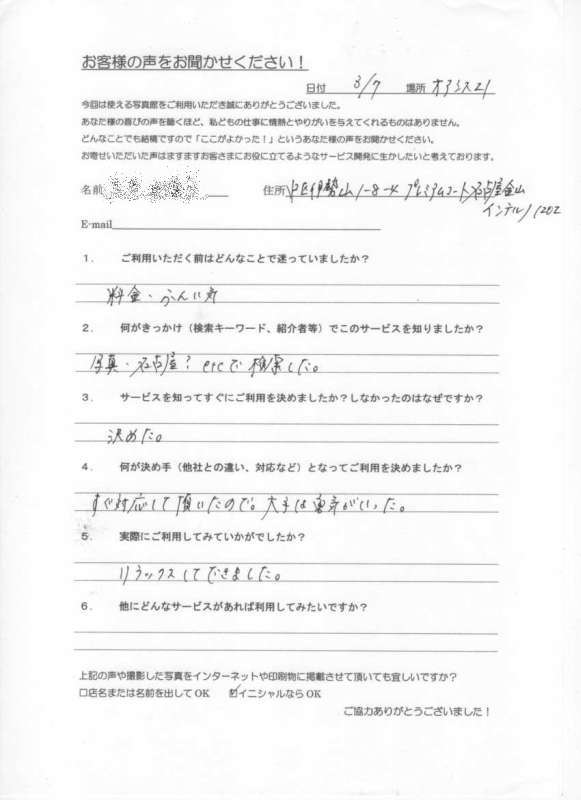 お客様の声をお聞かせください！
日付 8/7 場所 オアシス21
今回は使える写真館をご利用いただき誠にありがとうございました。
あなた様の喜びの声を聴くほど、私どもの仕事に情熱とやりがいを与えてくれるものはありません。
どんなことでも結構ですので「ここがよかった！」というあなた様の声をお聞かせください。
お寄せいただいた声はますますお客さまにお役に立てるようなサービス開発に生かしたいと考えております。
名前 住所 中区伊勢山1-8-4 プレミアムコート名古屋金山
インテルノ1202
E-mail
1． ご利用いただく前はどんなことで迷っていましたか？
料金・ふんい気
2． 何がきっかけ（検索キーワード、紹介者等）でこのサービスを知りましたか？
写真・名古屋？etcで検索した。
3． サービスを知ってすぐにご利用を決めましたか？しなかったのはなぜですか？
決めた。
4． 何が決め手（他社との違い、対応など）となってご利用を決めましたか？
すぐ対応して頂いたので。大手は
5． 実際にご利用してみていかがでしたか？
リラックスしてできました。
6． 他にどんなサービスがあれば利用してみたいですか？
上記の声や撮影した写真をインターネットや印刷物に掲載させて頂いても宜しいですか？
□店名または名前を出してOK ☑イニシャルならOK
ご協力ありがとうございました！